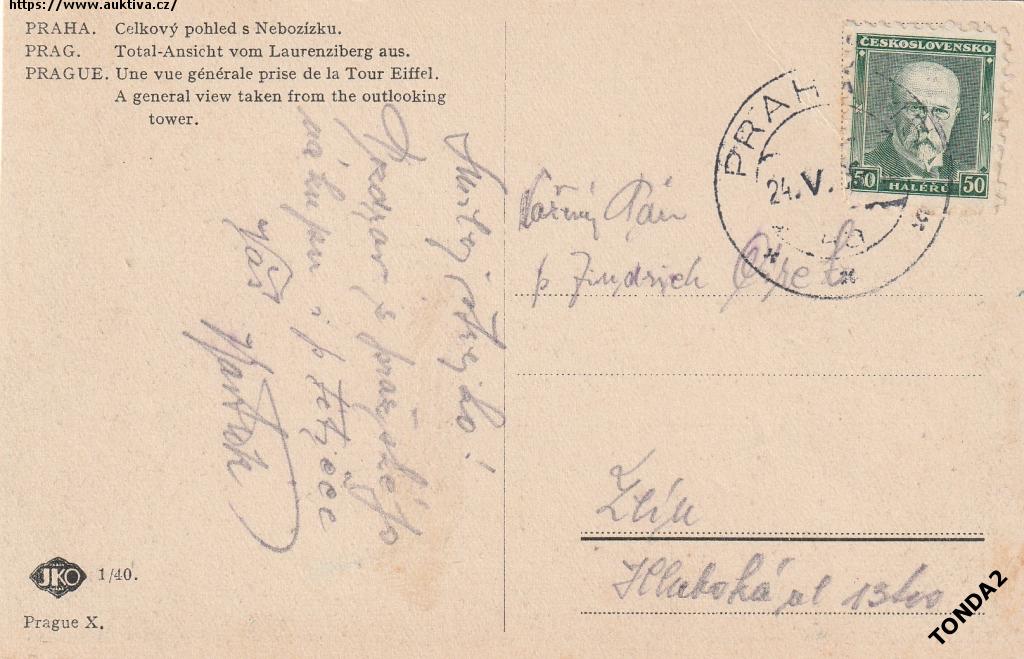 https://www.auktiva.cz/
PRAHA. Celkový pohled s Nebozízku.
PRAG. Total-Ansicht vom Laurenziberg aus.
PRAGUE. Une vue générale prise de la Tour Eiffel.
A general view taken from the outlooking
tower.
Milý strejdo!
Pozdrav s pražského
nákupu i p tetičce
Váš
ČESKOSLOVENSKO
50 HALÉŘŮ 50
PRAH
24.V.
Pán
p Jindřich
Zlín
Hluboká ul
JKO 1/40.
Prague X.
TONDA2